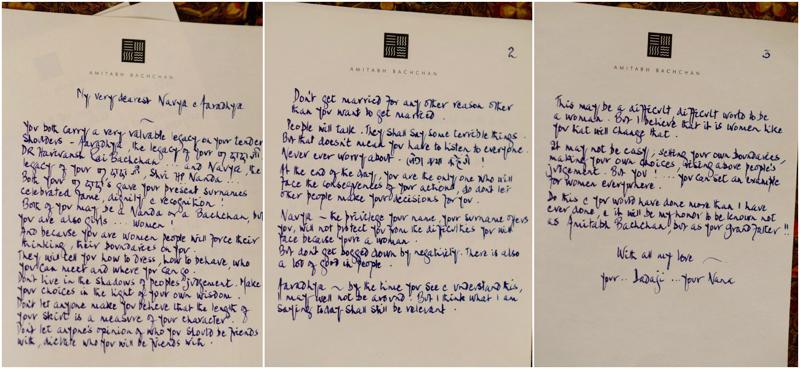 AMITABH BACHCHAN
My very dearest Navya & Aaradhya
You both carry a very valuable legacy on your tender
shoulders - Aaradhya, the legacy of your परदादा जी,
DR Harivansh Rai Bachchan ... and Navya, the
legacy of your परदादा जी, Shri HP Nanda ..
Both your परदादा's gave your present surnames
celebrated fame, dignity & recognition!
Both of you may be a Nanda or a Bachchan, but
you are also girls ... Women!
And because you are women people will force their
thinking, their boundaries on you.
They will tell you how to dress, how to behave, who
you can meet and where you can go.
Don't live in the shadows of people's judgement. Make
your choices in the light of your own wisdom.
Don't let anyone make you believe that the length of
your skirt is a measure of your character.
Don't let anyone's opinion of who you should be friends
with, dictate who you will be friends with.
2
AMITABH BACHCHAN
Don't get married for any other reason other
than you want to get married.
People will talk. They shall say some terrible things.
But that doesn't mean you have to listen to everyone.
Never ever worry about - लोग क्या कहेंगे !
At the end of the day, you are the only one who will
face the consequences of your actions, so don't let
other people make your decisions for you.
Navya - the privilege your name, your surname offers
you, will not protect you from the difficulties you will
face because you're a woman.
But don't get bogged down by negativity. There is also
a lot of good in people.
Aaradhya - by the time you see & understand this,
I may well not be around. But I think what I am
saying today shall still be relevant.
3
AMITABH BACHCHAN
This may be a difficult, difficult world to be
a woman. But I believe that it is women like
you that will change that.
It may not be easy, setting your own boundaries,
making your own choices, rising above people's
judgement. But YOU! .... you can set an example
for women everywhere.
Do this & you would have done more than I have
ever done, & it will be my honor to be known not
as Amitabh Bachchan, but as your grandfather!!
With all my love -
your .. Dadaji ... your Nana